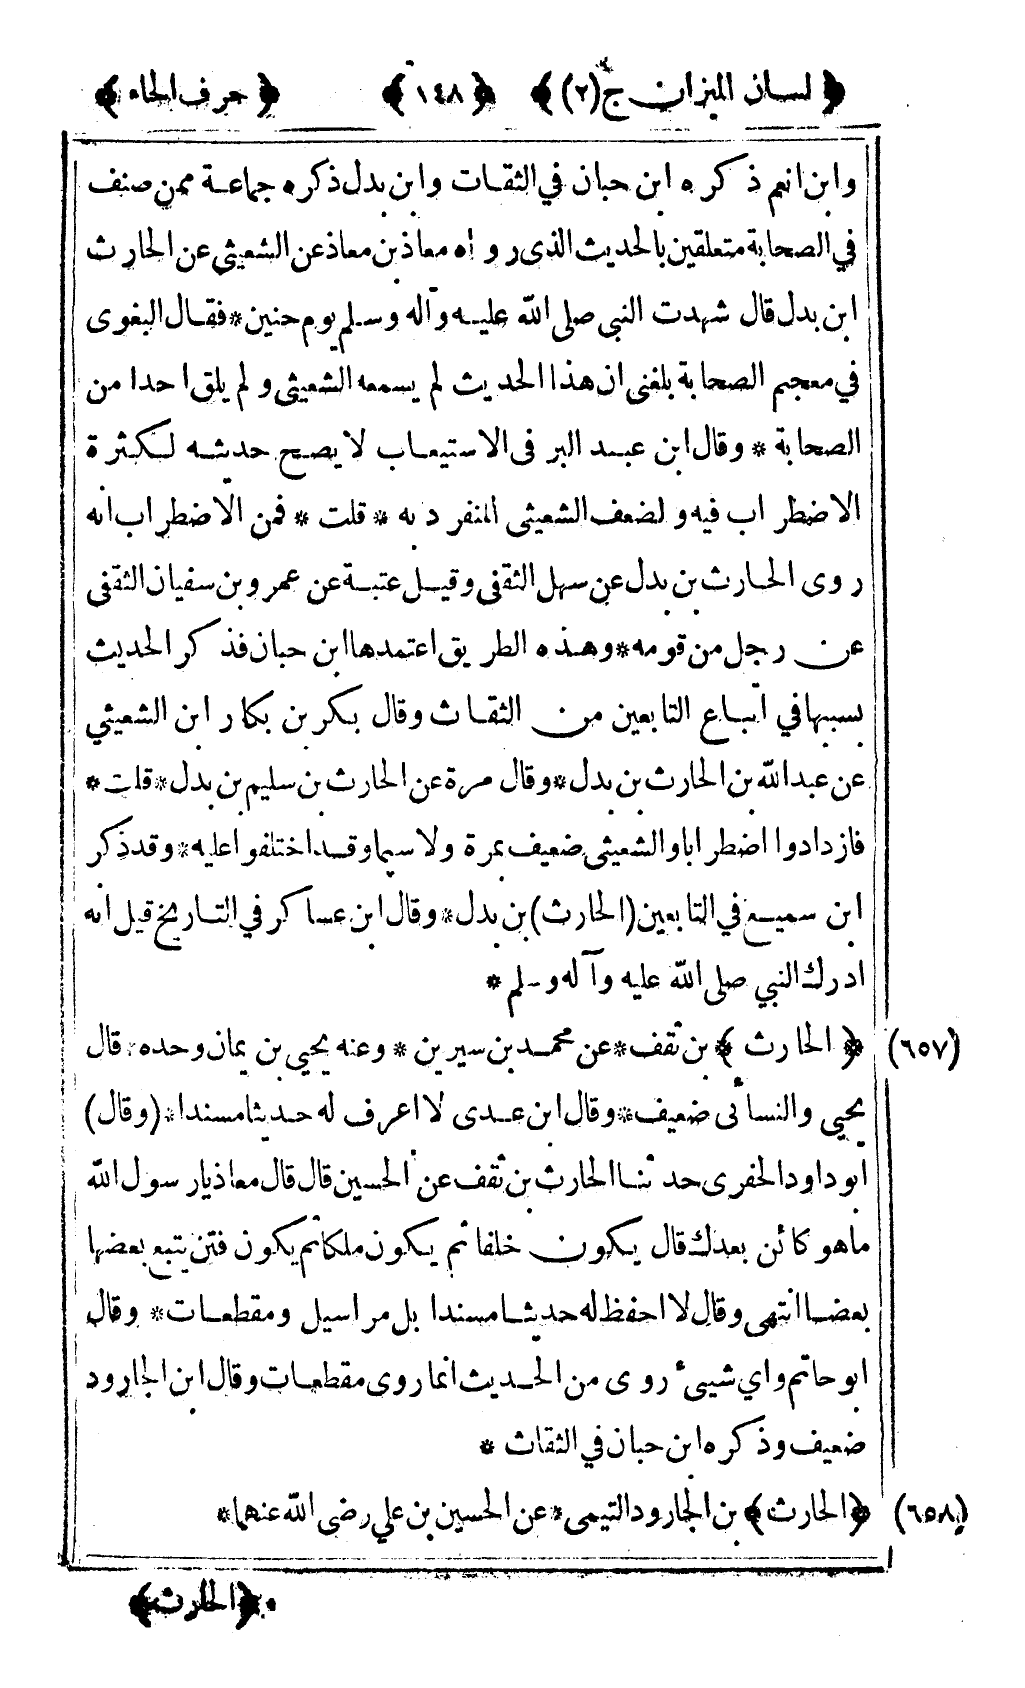 ﴿ لسان الميزان ج (٢) ﴾ ﴿ ١٤٨ ﴾ ﴿ حرف الحاء ﴾
وابن انعم ذكره ابن حبان في الثقات وابن بدل ذكره جماعة ممن صنف
في الصحابة متعلقين بالحديث الذى رواه معاذ بن معاذ عن الشعيثي عن الحارث
ابن بدل قال شهدت النبي صلى الله عليه وآله وسلم يوم حنين * فقال البغوى
في معجم الصحابة بلغنى ان هذا الحديث لم يسمعه الشعيثى ولم يلق احدا من
الصحابة * وقال ابن عبد البر فى الاستيعاب لا يصح حديثه لكثرة
الاضطراب فيه ولضعف الشعيثى المنفرد به * قلت * فمن الاضطراب انه
روى الحارث بن بدل عن سهل الثقفى وقيل عتبة عن عمرو بن سفيان الثقفى
عن رجل من قومه * وهذه الطريق اعتمدها ابن حبان فذكر الحديث
بسببها في اتباع التابعين من الثقاث وقال بكر بن بكار ابن الشعيثي
عن عبد الله بن الحارث بن بدل * وقال مرة عن الحارث بن سليم بن بدل * قلت *
فازدادوا اضطرابا والشعيثى ضعيف بمرة ولا سيما وقد اختلفوا عليه * وقد ذكر
ابن سميع في التابعين (الحارث) بن بدل * وقال ابن عساكر في التاريخ قيل انه
ادرك النبي صلى الله عليه وآله وسلم *
(٦٥٧) ﴿ الحارث ﴾ بن ثقف * عن محمد بن سيرين * وعنه يحيي بن يمان وحده * قال
يحيي والنسائى ضعيف * وقال ابن عدى لا اعرف له حديثا مسندا * (وقال)
ابو داود الحفرى حدثنا الحارث بن ثقف عن الحسين قال قال معاذ يا رسول الله
ما هو كائن بعدك قال يكون خلفا ثم يكون ملكا ثم يكون فتن يتبع بعضها
بعضا انتهى وقال لا احفظ له حديثا مسندا بل مراسيل ومقطعات * وقال
ابو حاتم واي شيىء روى من الحديث انما روى مقطعات وقال ابن الجارود
ضعيف وذكره ابن حبان في الثقاث *
(٦٥٨) ﴿ الحارث ﴾ بن الجارود التيمى * عن الحسين بن علي رضى الله عنهما *
﴿ الحارث ﴾